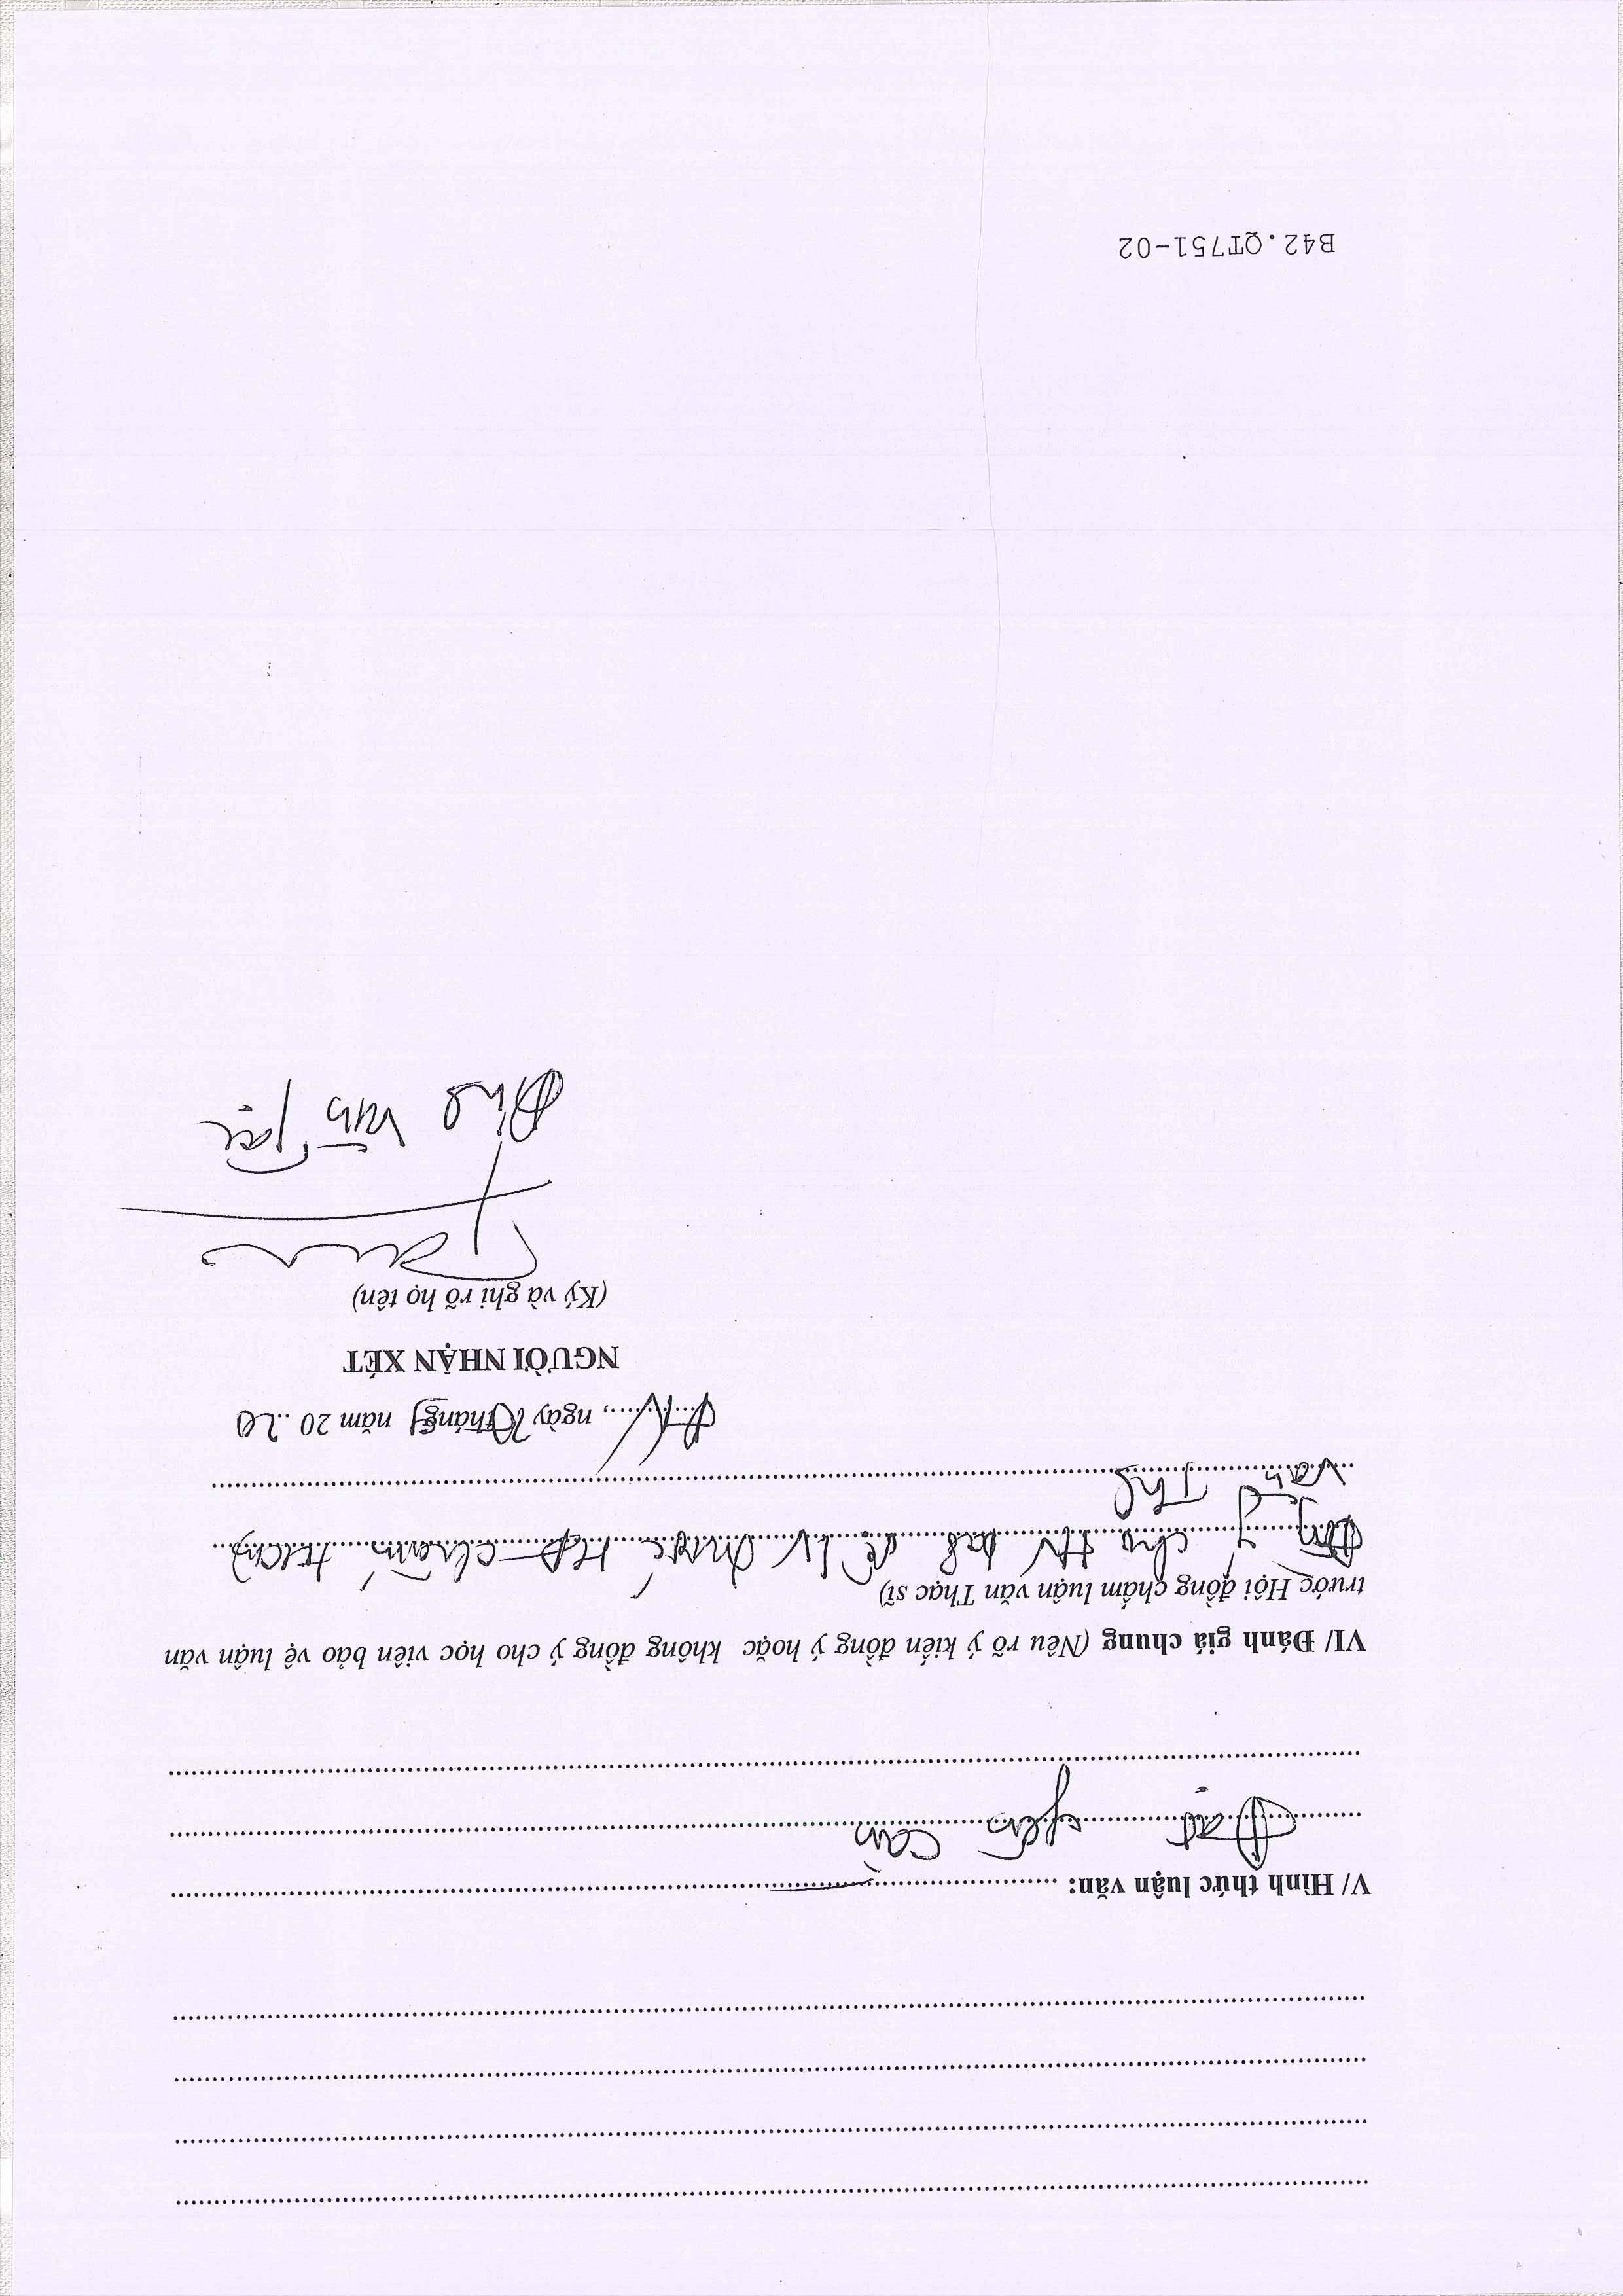 V/ Hình thức luận văn: ........................................
Đạt yêu cầu
VI/ Đánh giá chung (Nêu rõ ý kiến đồng ý hoặc không đồng ý cho học viên bảo vệ luận văn
trước Hội đồng chấm luận văn Thạc sĩ)
Đồng ý cho HV bảo vệ LV trước HĐ chấm
văn ThS
ngày tháng năm 20 20
NGƯỜI NHẬN XÉT
(Ký và ghi rõ họ tên)
văn
B42.QT751-02